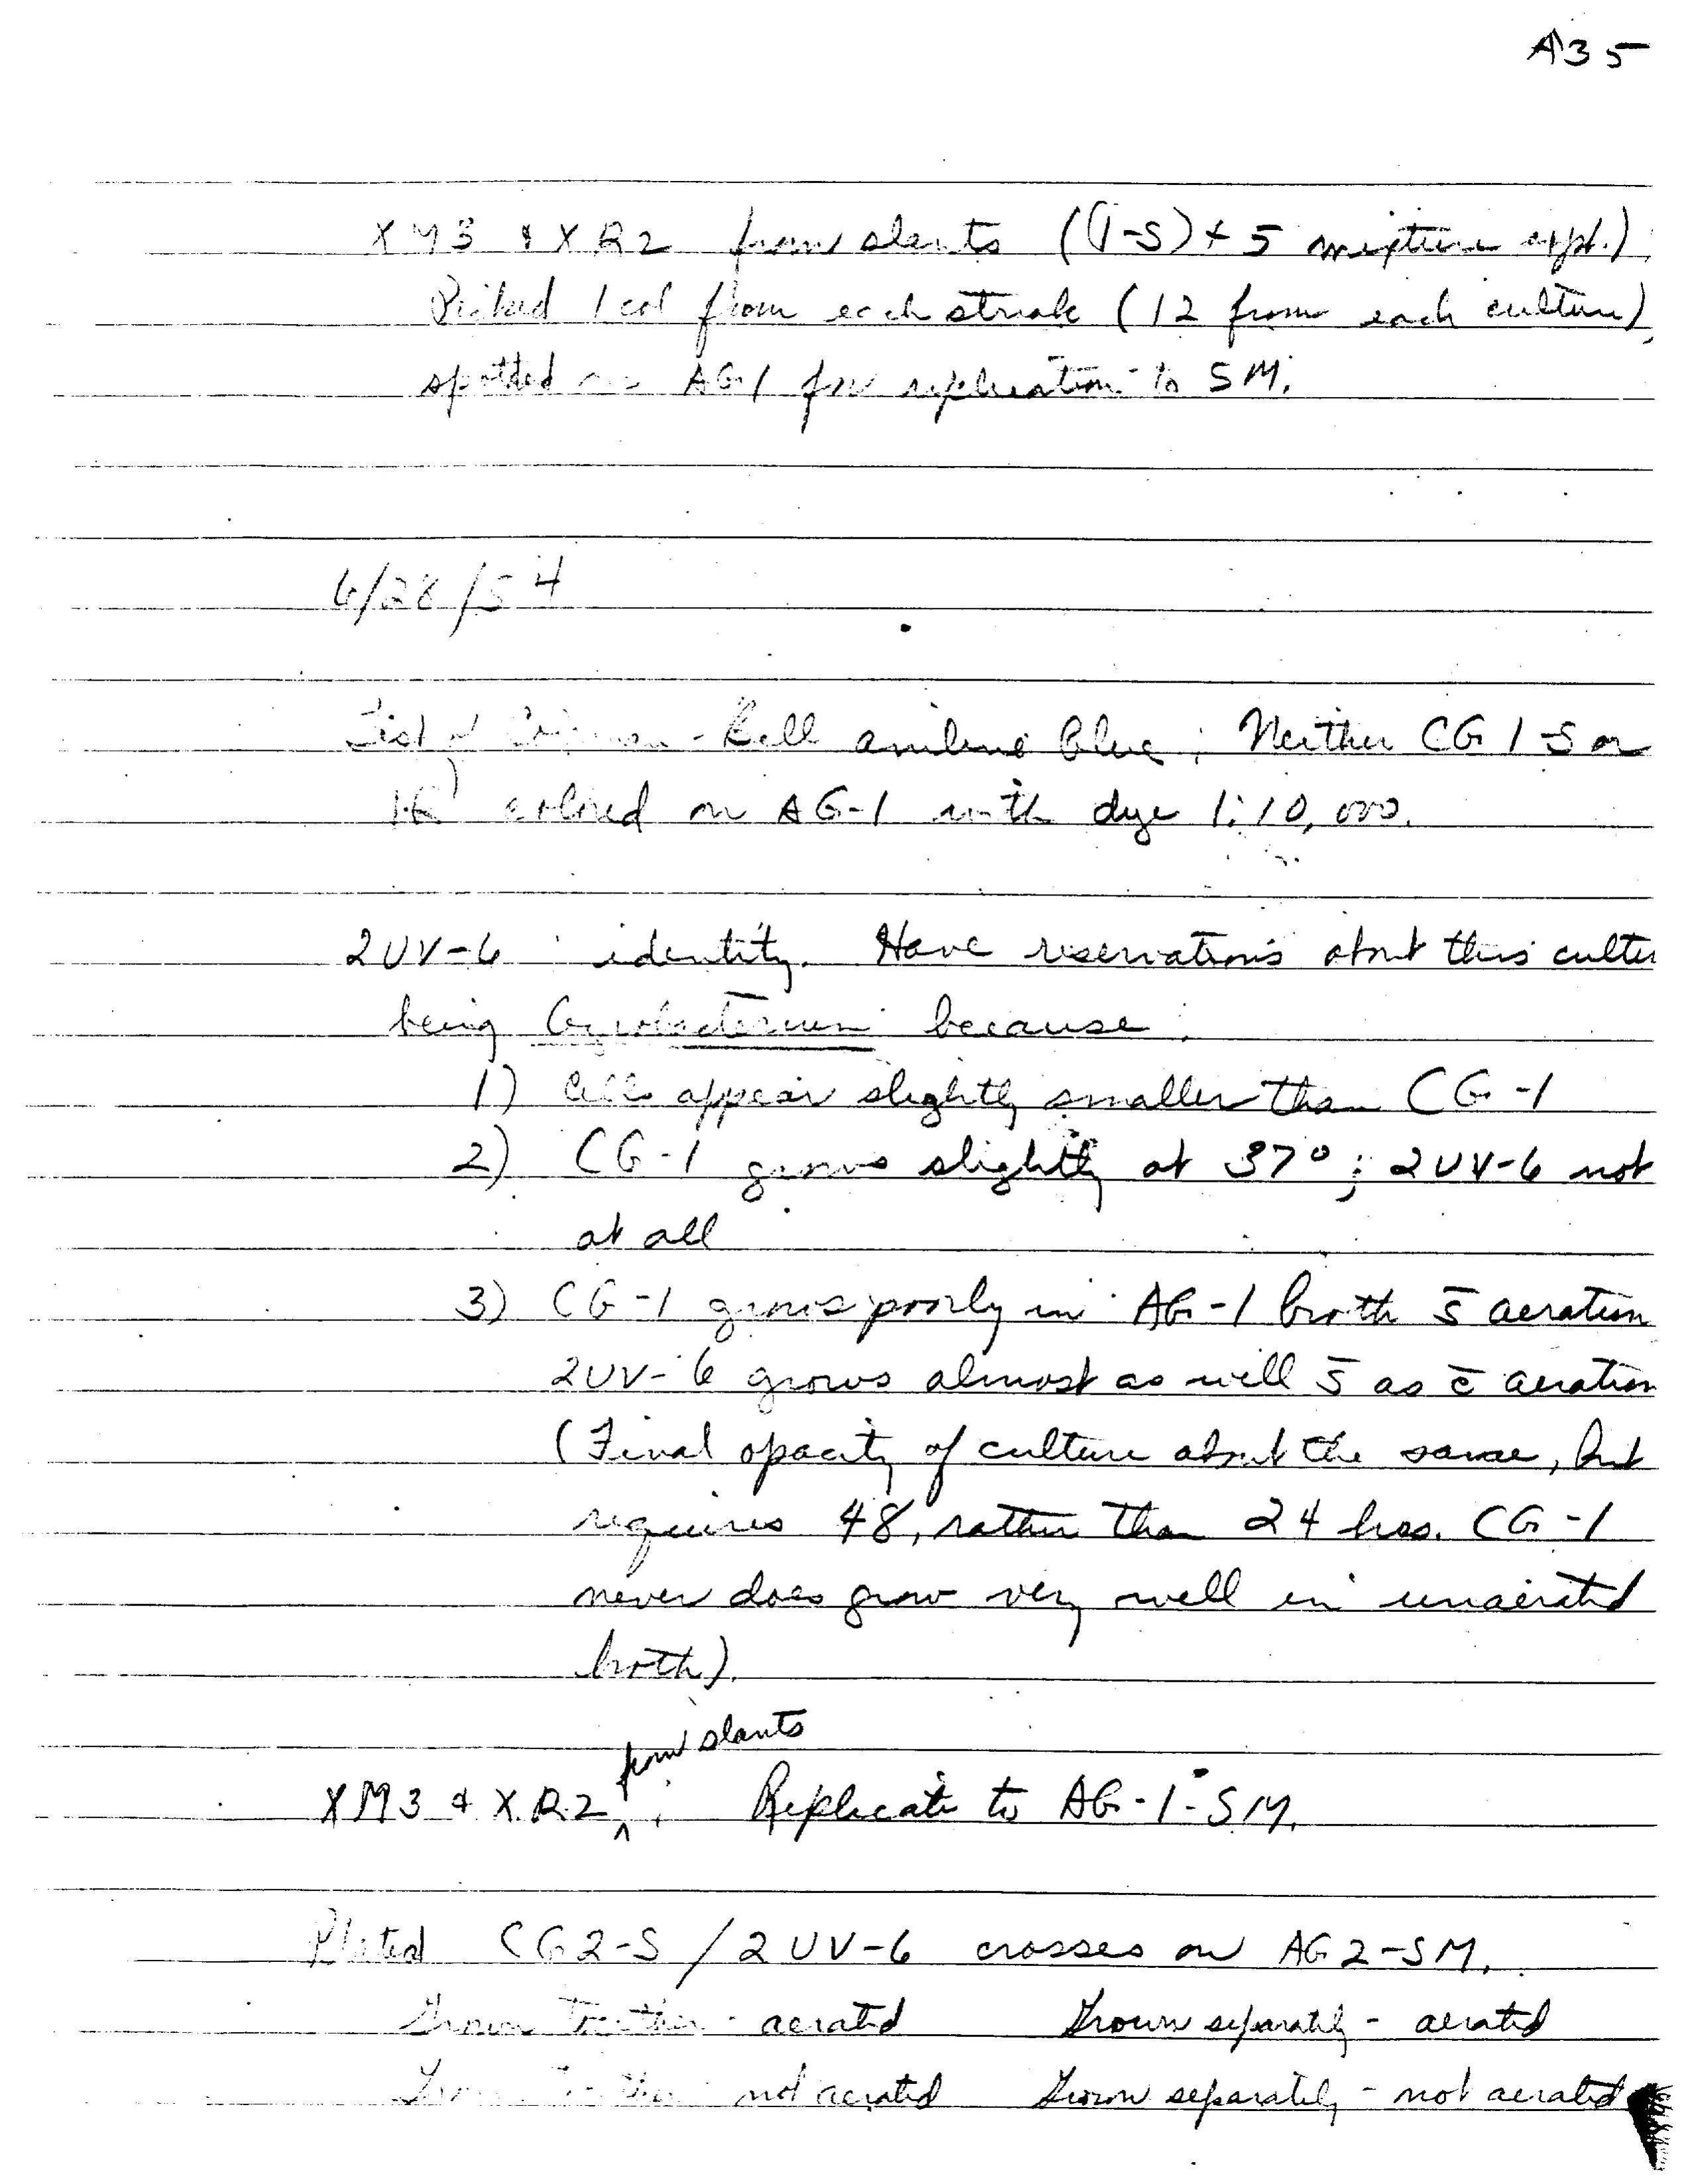 A35
XM3 & XR2 from slants ((1-S) + 5 mixture expt.)
Picked 1 col from each streak (12 from each culture),
spotted on AG-1 for replication to SM.
6/28/54
Test of Coleman-Bell aniline blue; Neither CG 1-S or
colored on AG-1 with dye 1:10,000.
2UV-6 identity. Have reservations about this cultu
being because:
1) Cells appear slightly smaller than CG-1
2) CG-1 grows slightly at 37°; 2UV-6 not
at all
3) CG-1 grows poorly in AG-1 broth s̄ aeration
2UV-6 grows almost as well s̄ as c̄ aeration
(Final opacity of culture about the same, but
requires 48, rather than 24 hrs. CG-1
never does grow very well in unaerated
broth).
from slants
XM3 & XR2 ^ : Replicate to AG-1-SM.
Plated CG2-S / 2UV-6 crosses on AG2-SM.
Grown together - aerated Grown separately - aerated
Grown together - not aerated Grown separately - not aerated